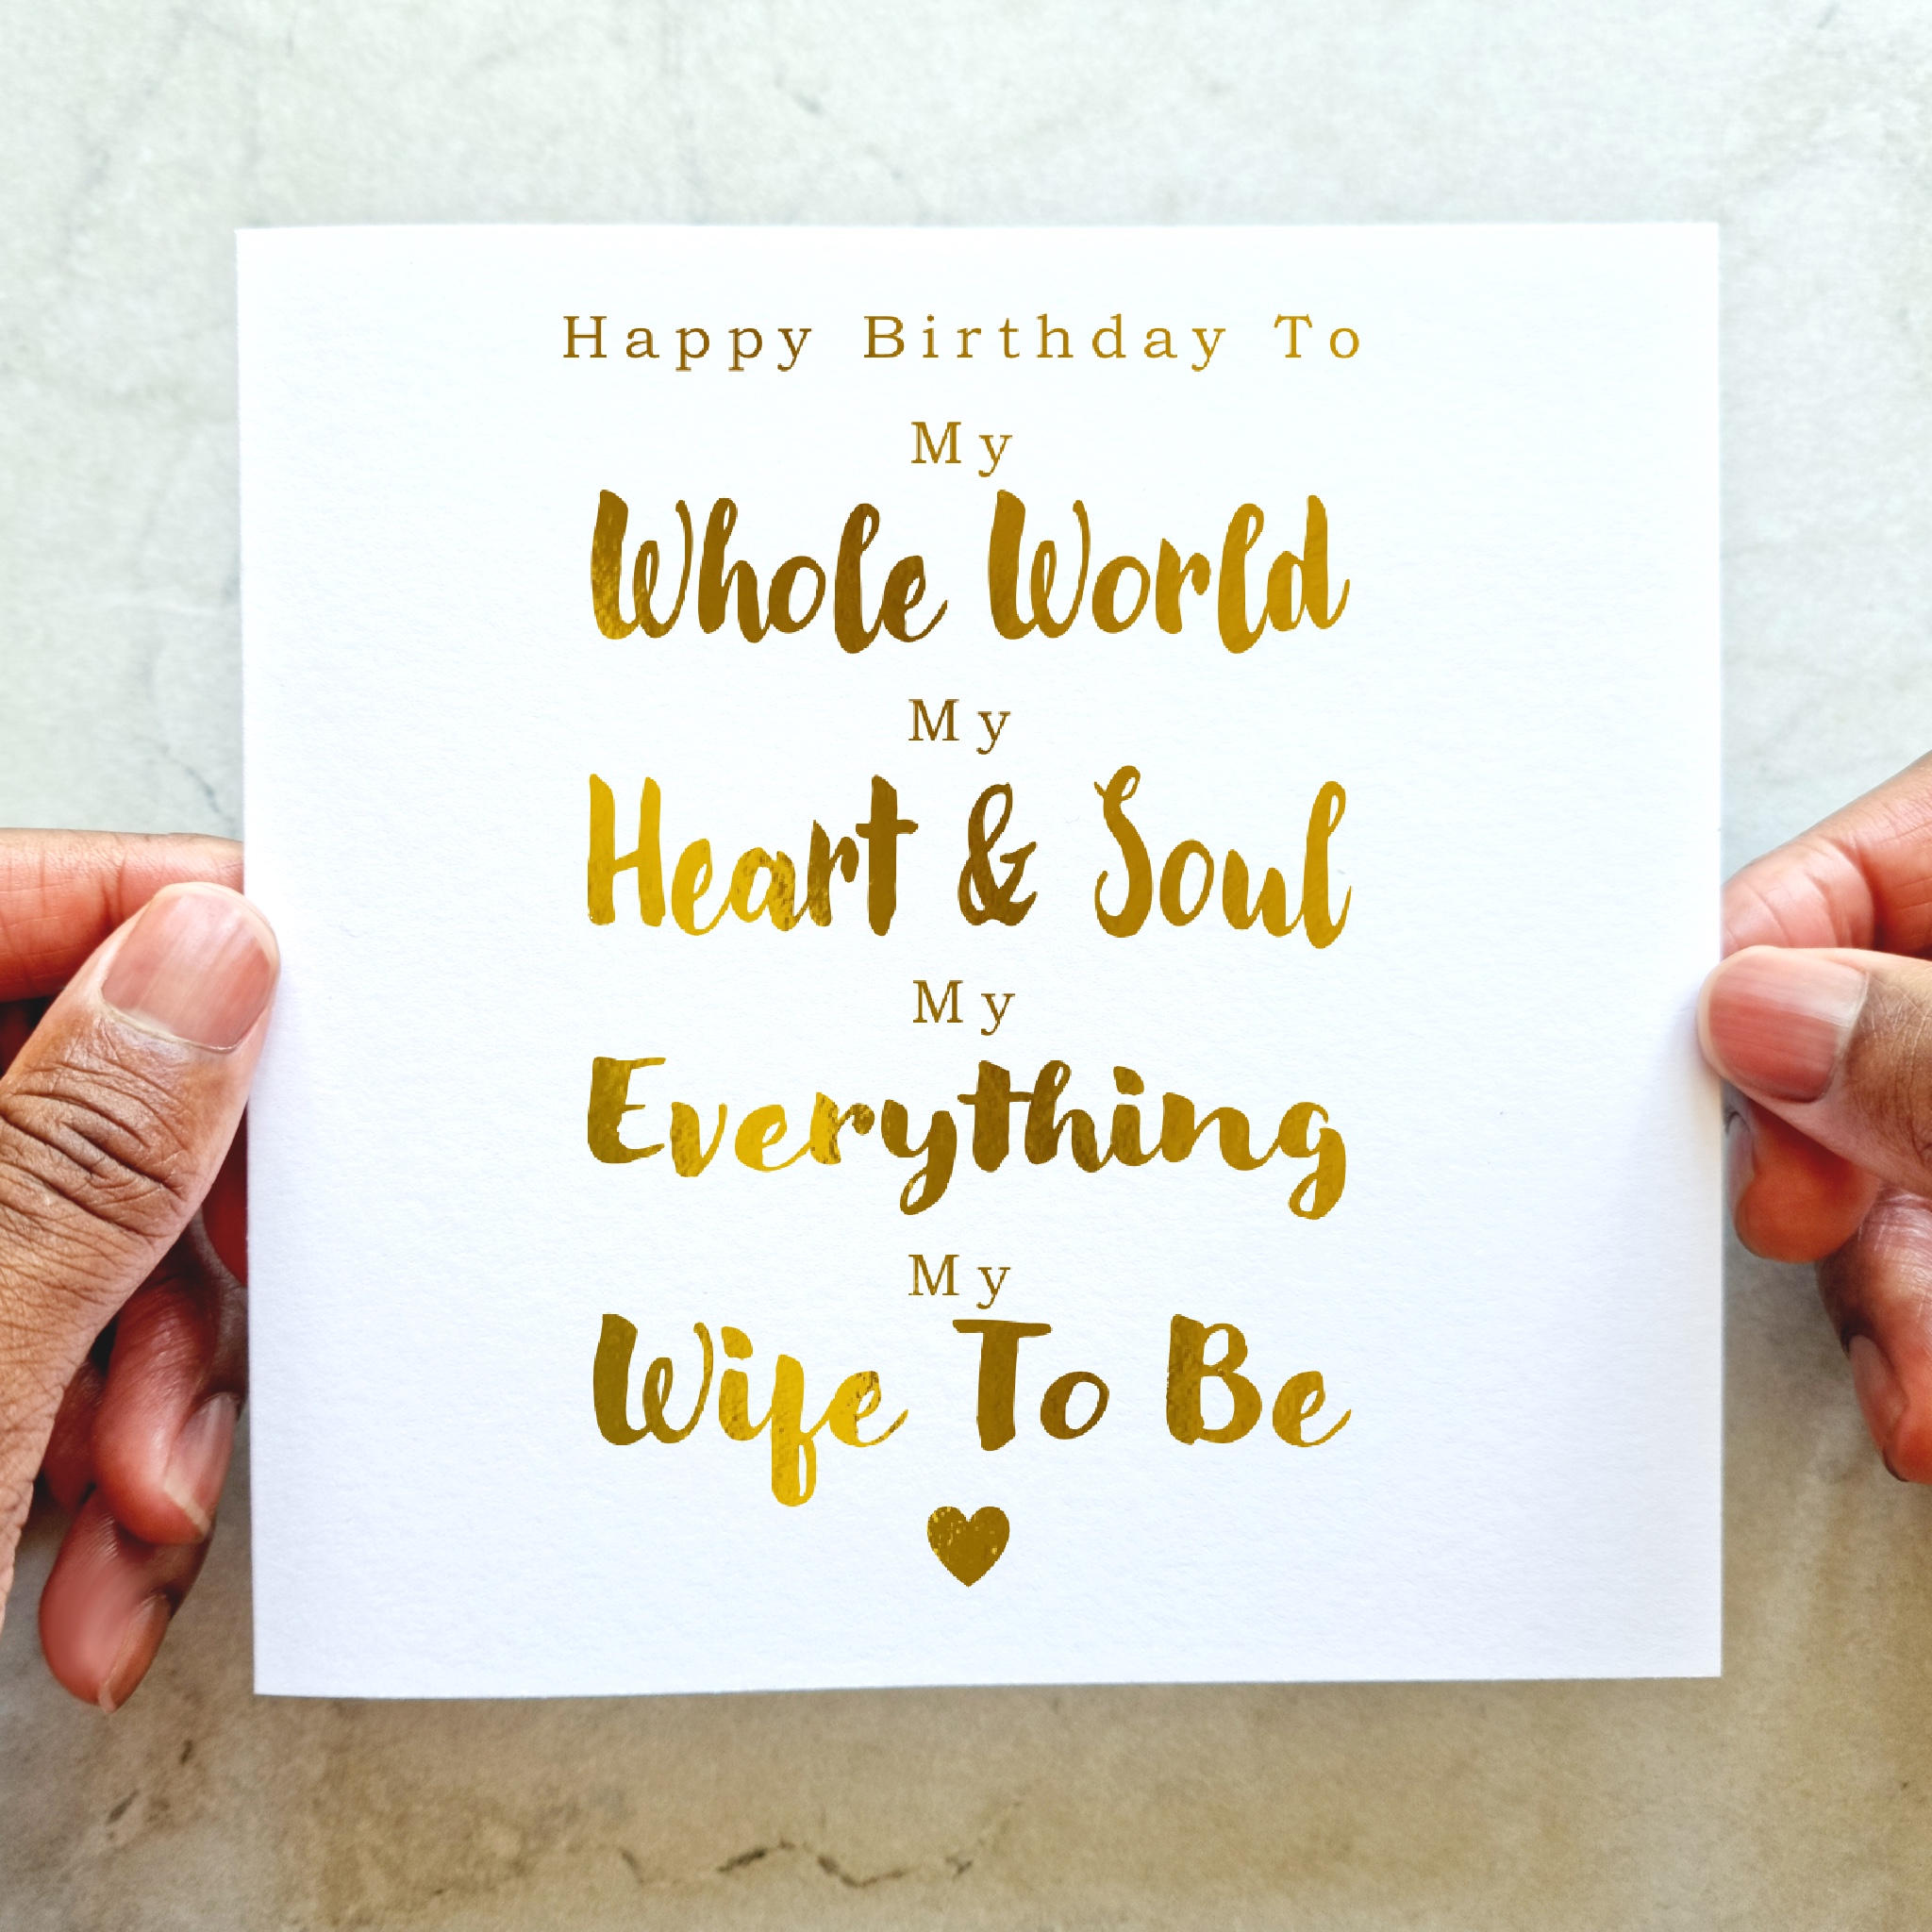 Happy Birthday To
My
Whole World
My
Heart & Soul
My
Everything
My
Wife To Be